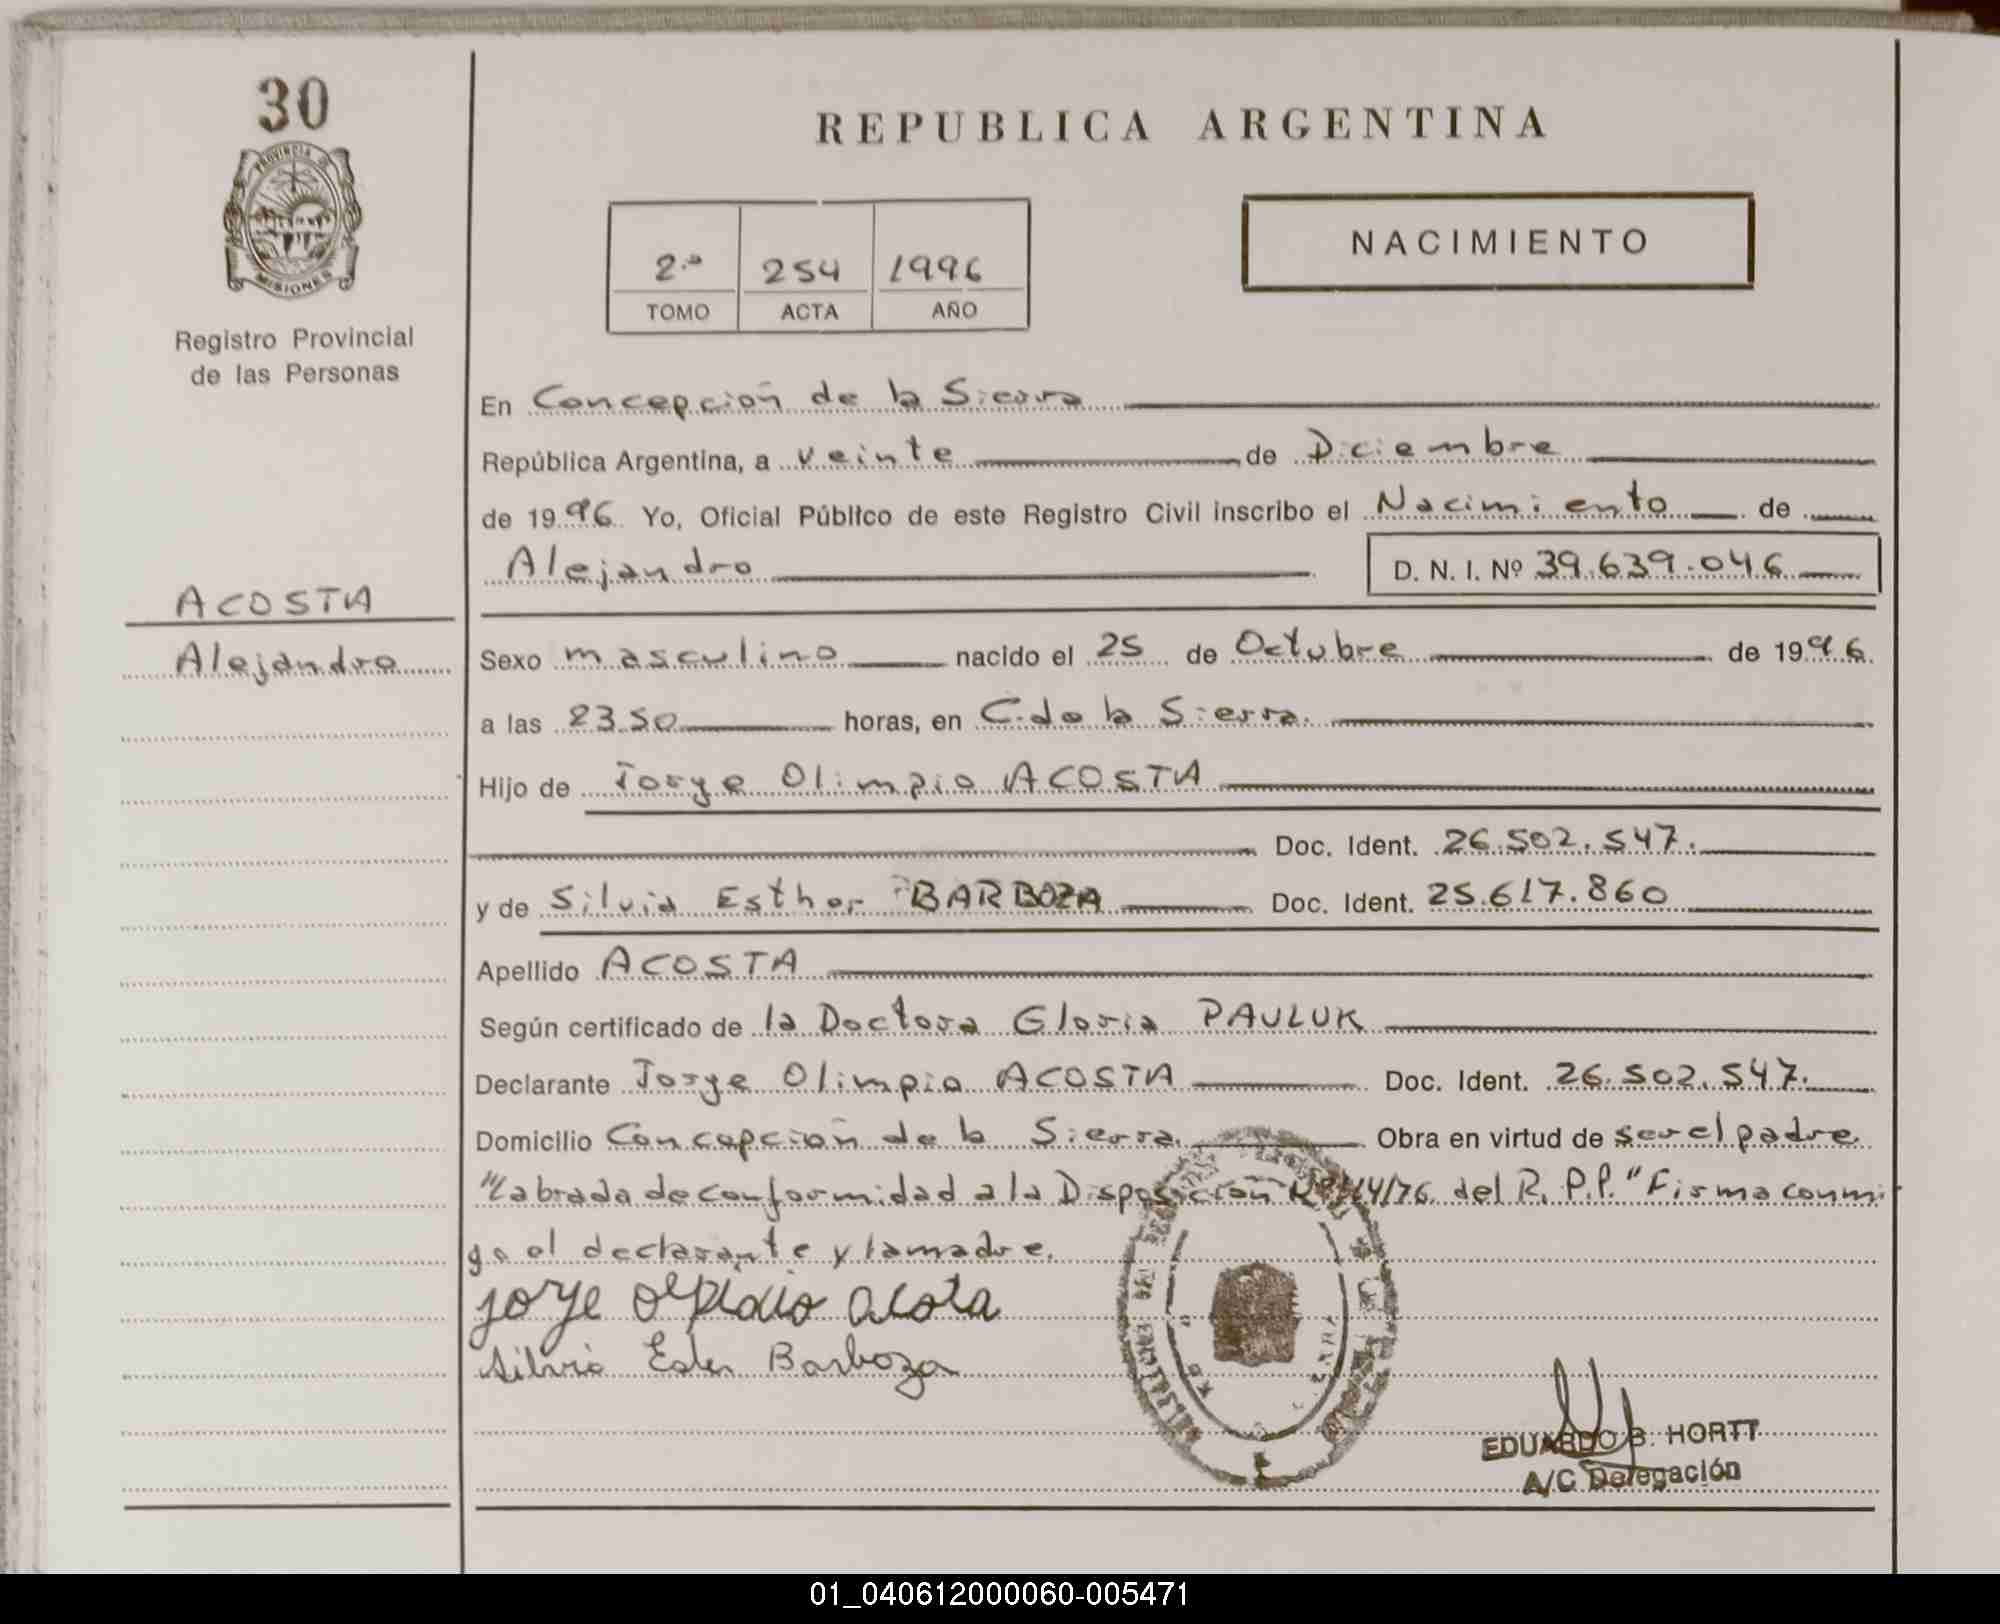 30
PROVINCIA DE
MISIONES
Registro Provincial
de las Personas
ACOSTA
Alejandro
REPUBLICA ARGENTINA
2.º 254 1996
TOMO ACTA AÑO
NACIMIENTO
En Concepción de la Sierra
República Argentina, a veinte de Diciembre
de 1996 Yo, Oficial Público de este Registro Civil inscribo el Nacimiento de
Alejandro D. N. I. Nº 39.639.046
Sexo masculino nacido el 25 de Octubre de 1996.
a las 23.50 horas, en C. de la Sierra.
Hijo de Jorge Olimpio ACOSTA
Doc. Ident. 26.502.547.
y de Silvia Esther BARBOZA Doc. Ident. 25.617.860
Apellido ACOSTA
Según certificado de la Doctora Gloria PAULUK
Declarante Jorge Olimpio ACOSTA Doc. Ident. 26.502.547.
Domicilio Concepción de la Sierra. Obra en virtud de ser el padre
"Labrada de conformidad a la Disposición /76 del R. P. P." Firma conmi
go el declarante y la madre.
jorge acosta
Silvia Ester Barboza
EDUARDO B. HORTT
A/C Delegación
01_040612000060-005471